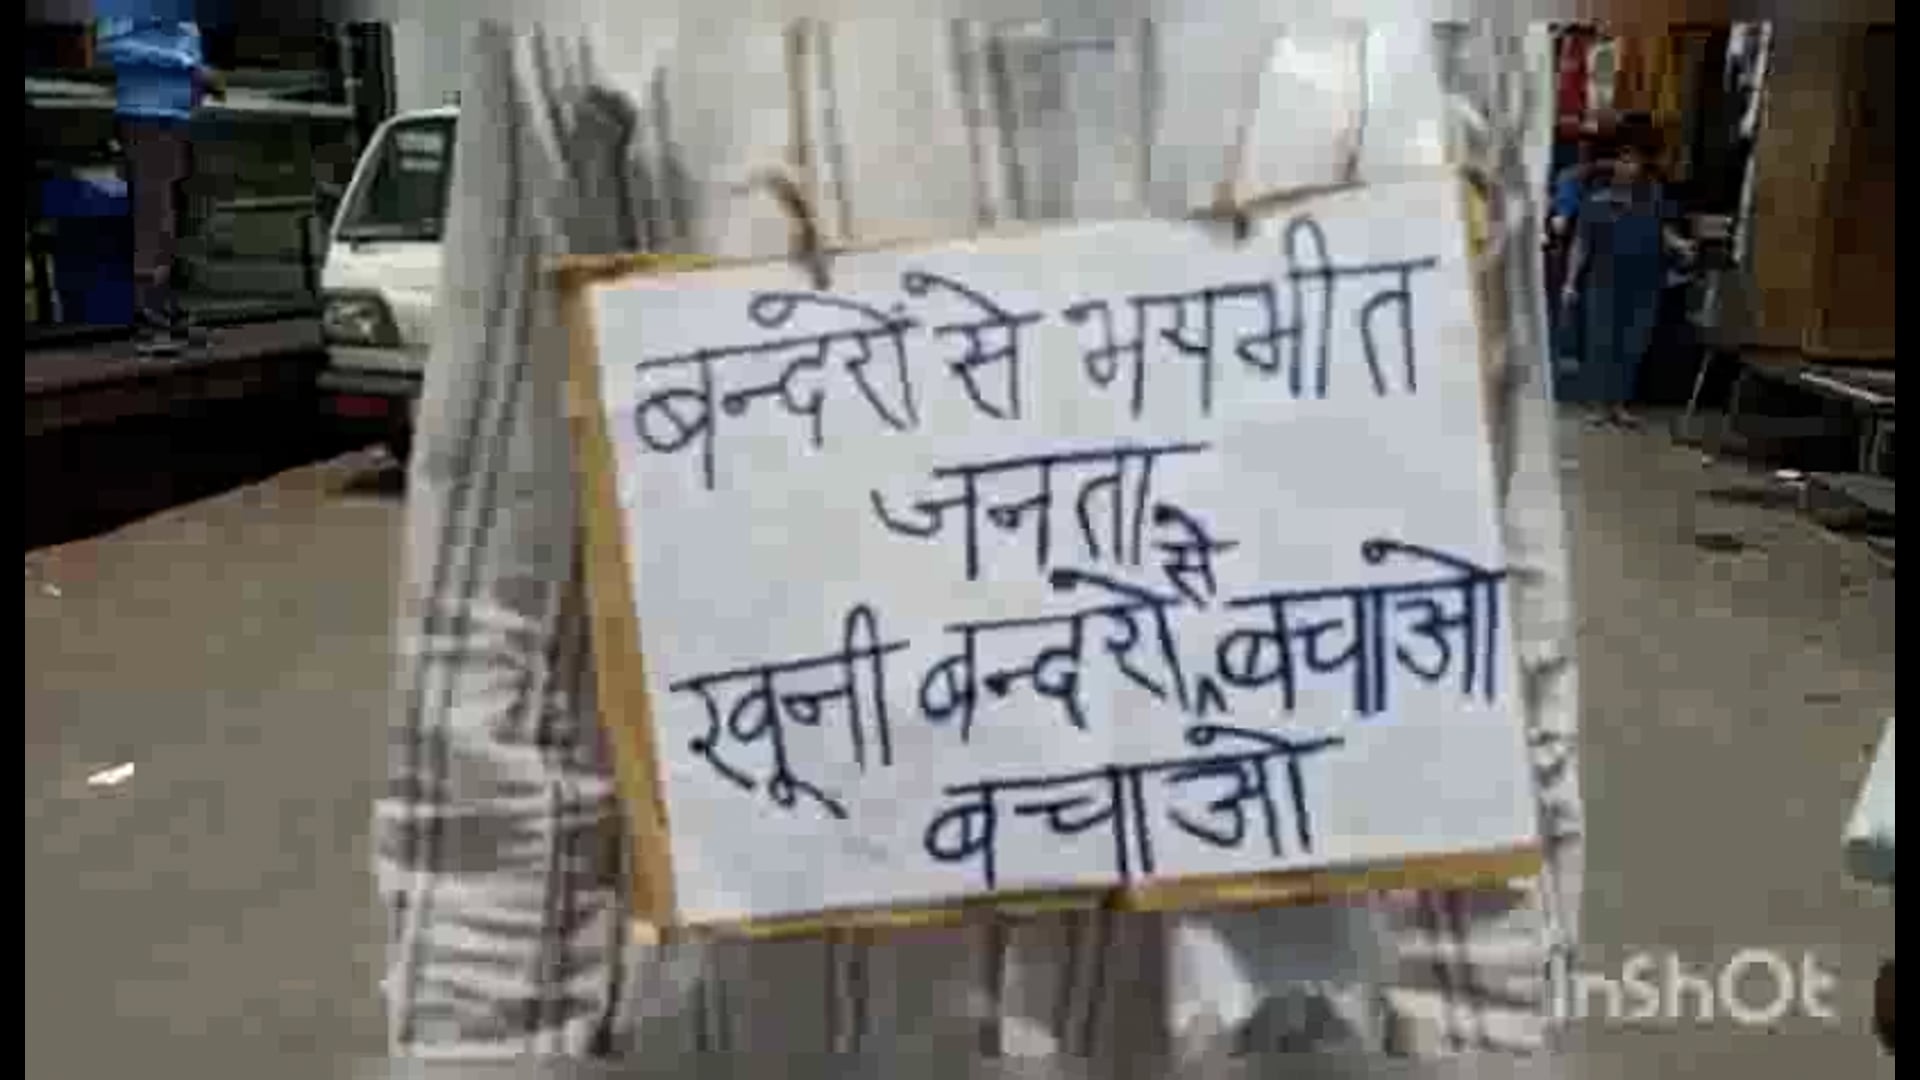 बन्दरों से भयभीत
जनता
खूनी बन्दरो से बचाओ
बचाओ
InShOt